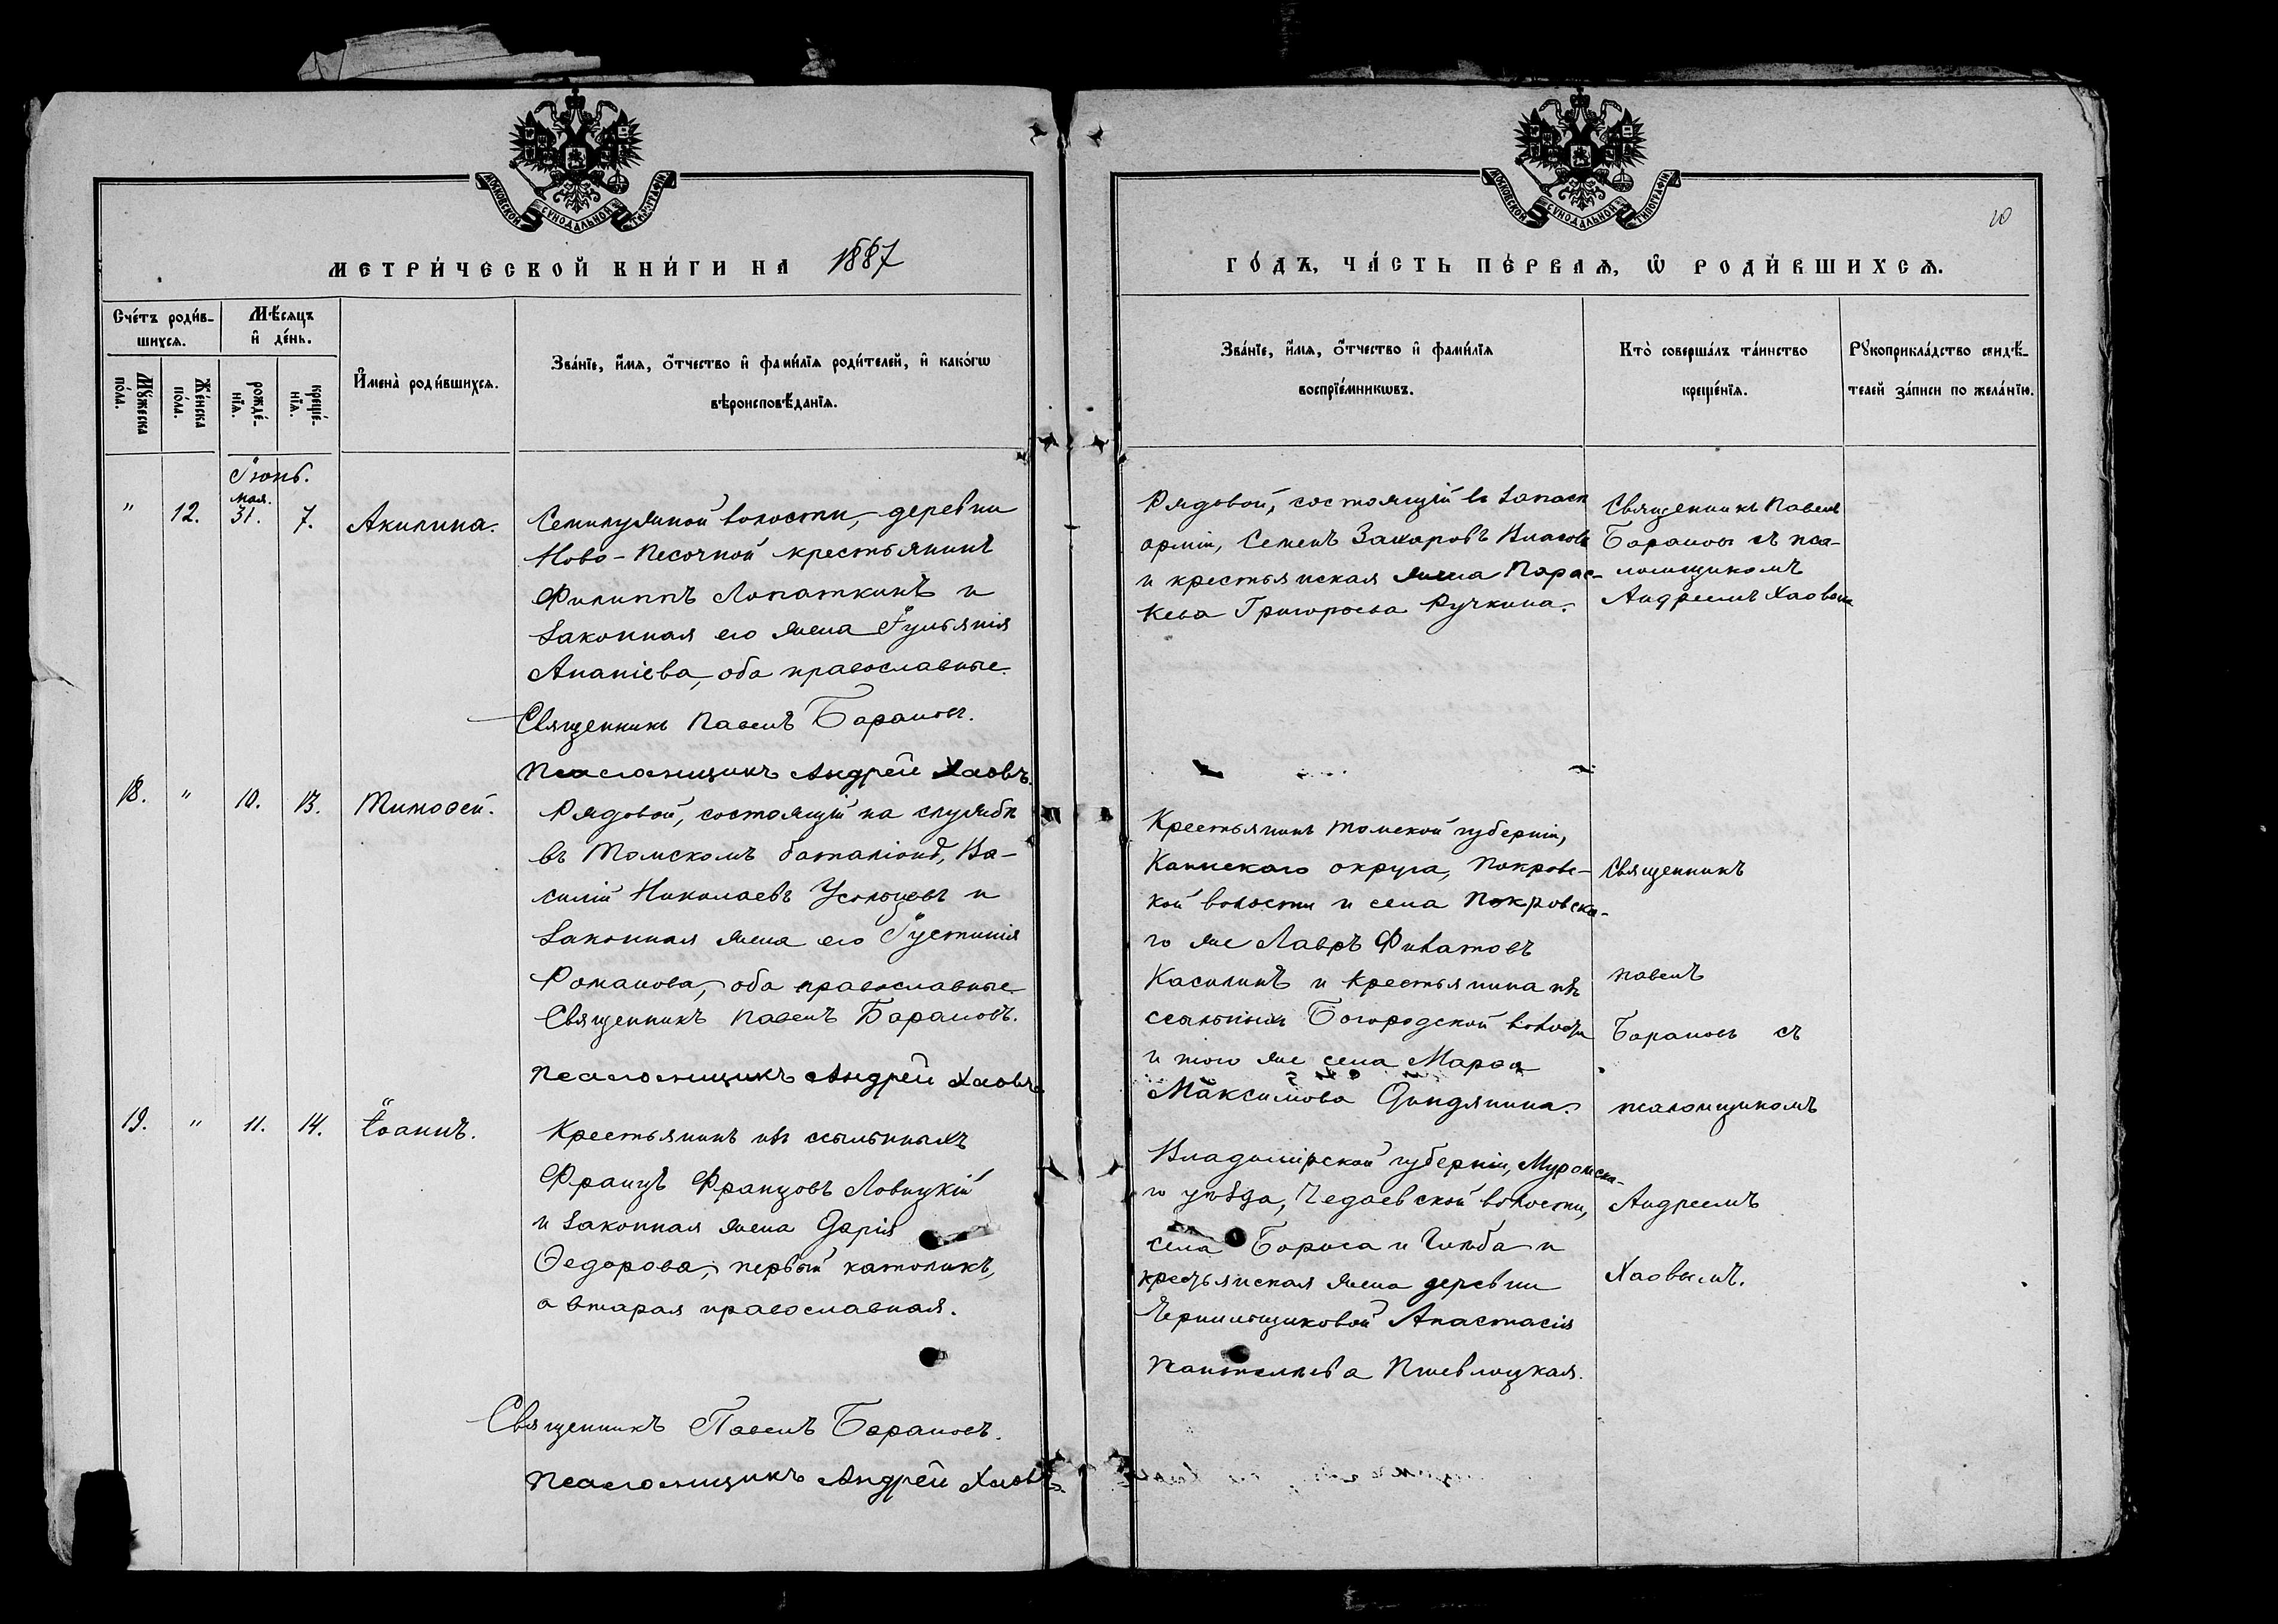 МОСКОВСКОЙ СУНОДАЛЬНОЙ ТИПОГРАФІИ
МЕТРИ́ЧЕСКОЙ КНИ́ГИ НА 1887
Сче́тъ роди́в-
шихсѧ.
Мѣ́сѧцъ
и҆ де́нь.
Мꙋ́жеска по́ла.
Же́нска по́ла.
рожде́-
нїѧ.
креще́-
нїѧ.
И҆мена̀ роди́вшихсѧ.
Зва́нїе, и҆́мѧ, ѻ҆́тчество и҆ фами́лїѧ роди́телей, и҆ како́гѡ
вѣроисповѣ́данїѧ.
Іюнь.
мая.
" 12. 31. 7. Акилина.
Семилужной волости, деревни
Ново-Песочной крестьянинъ
Филиппъ Лопаткинъ и
законная его жена Іульянія
Ананіева, оба православные.
Священникъ Павелъ Барановъ.
Псаломщикъ Андрей Хаовъ.
18. " 10. 13. Тимоѳей.
Рядовой, состоящій на службѣ
въ Томскомъ баталіонѣ, Ва-
силій Николаевъ Усольцевъ и
законная жена его Іустинія
Романова, оба православные
Священникъ Павелъ Барановъ.
Псаломщикъ Андрей Хаовъ
19. " 11. 14. Іоаннъ.
Крестьянинъ изъ ссыльныхъ
Францъ Францовъ Ловицкій
и законная жена Дарія
Ѳедорова, первый католикъ,
а вторая православная.
Священникъ Павелъ Барановъ.
Псаломщикъ Андрей Хаовъ
МОСКОВСКОЙ СУНОДАЛЬНОЙ ТИПОГРАФІИ
20
ГО́ДЪ, ЧА́СТЬ ПЕ́РВАѦ, Ѡ҆ РОДИ́ВШИХСѦ.
Зва́нїе, и҆́мѧ, ѻ҆́тчество и҆ фами́лїѧ
воспрїе́мникѡвъ.
Кто̀ соверша́лъ та́инство
креще́нїѧ.
Рꙋкоприкла́дство свидѣ́-
телей за́писи по жела́нїю.
Рядовой, состоящій въ запасѣ
арміи, Семенъ Захаровъ Власовъ
и крестьянская жена Парас-
кева Григорьева Ручкина.
Священникъ Павелъ
Барановъ съ пса-
ломщикомъ
Андреемъ Хаовымъ
Крестьянинъ Томской губерніи,
Каинскаго округа, Покровс-
кой волости и села Покровска-
го же Лавръ Филатовъ
Касилинъ и крестьянина изъ
ссыльныхъ Богородской волости
и того же села Марѳа
Максимова
Священникъ
Павелъ
Барановъ съ
псаломщикомъ
Андреемъ
Хаовымъ.
Владимірской губерніи, Муромска-
го уѣзда, Чедаевской волости,
села Бориса и Глѣба и
крестьянская жена деревни
Чернильщиковой Анастасія
Пантелѣева